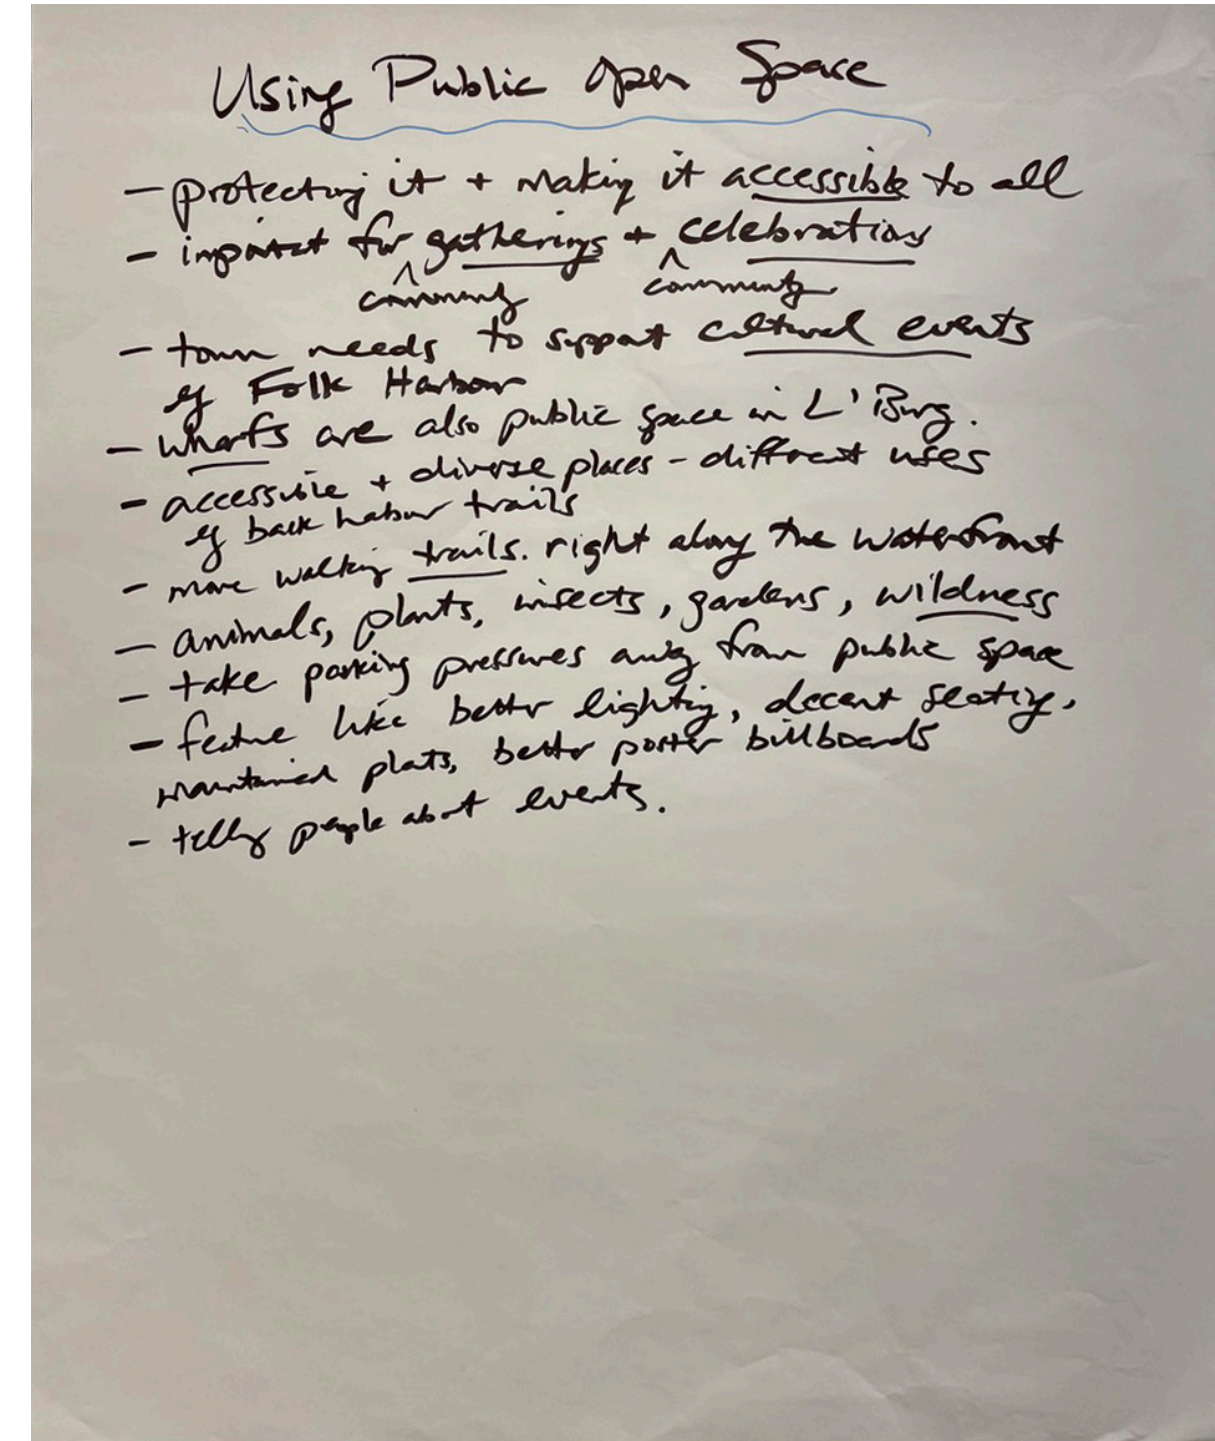 Using Public Open Space
- protecting it + making it accessible to all
- important for gatherings + celebrations
community community
- town needs to support cultural events
eg Folk Harbour
- wharfs are also public space in L'Burg.
- accessible + diverse places - different uses
eg back habour trails
- more walking trails. right along the waterfront
- animals, plants, insects, gardens, wildness
- take parking pressures away from public space
- feature like better lighting, decent seating,
maintained plats, better poster billboards
- telling people about events.